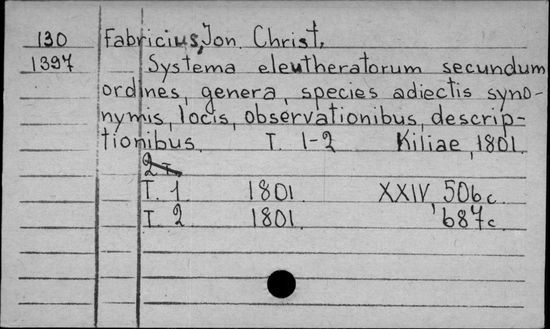 130 Fabricius, Jon. Christ.
1397 Systema eleutheratorum secundum
ordines, genera, species adiectis syno-
nymis, locis, observationibus, descrip-
tionibus. T. 1-2 Kiliae, 1801.
2 т.
T. 1 1801. XXIV, 506 c.
T. 2 1801. 687 c.